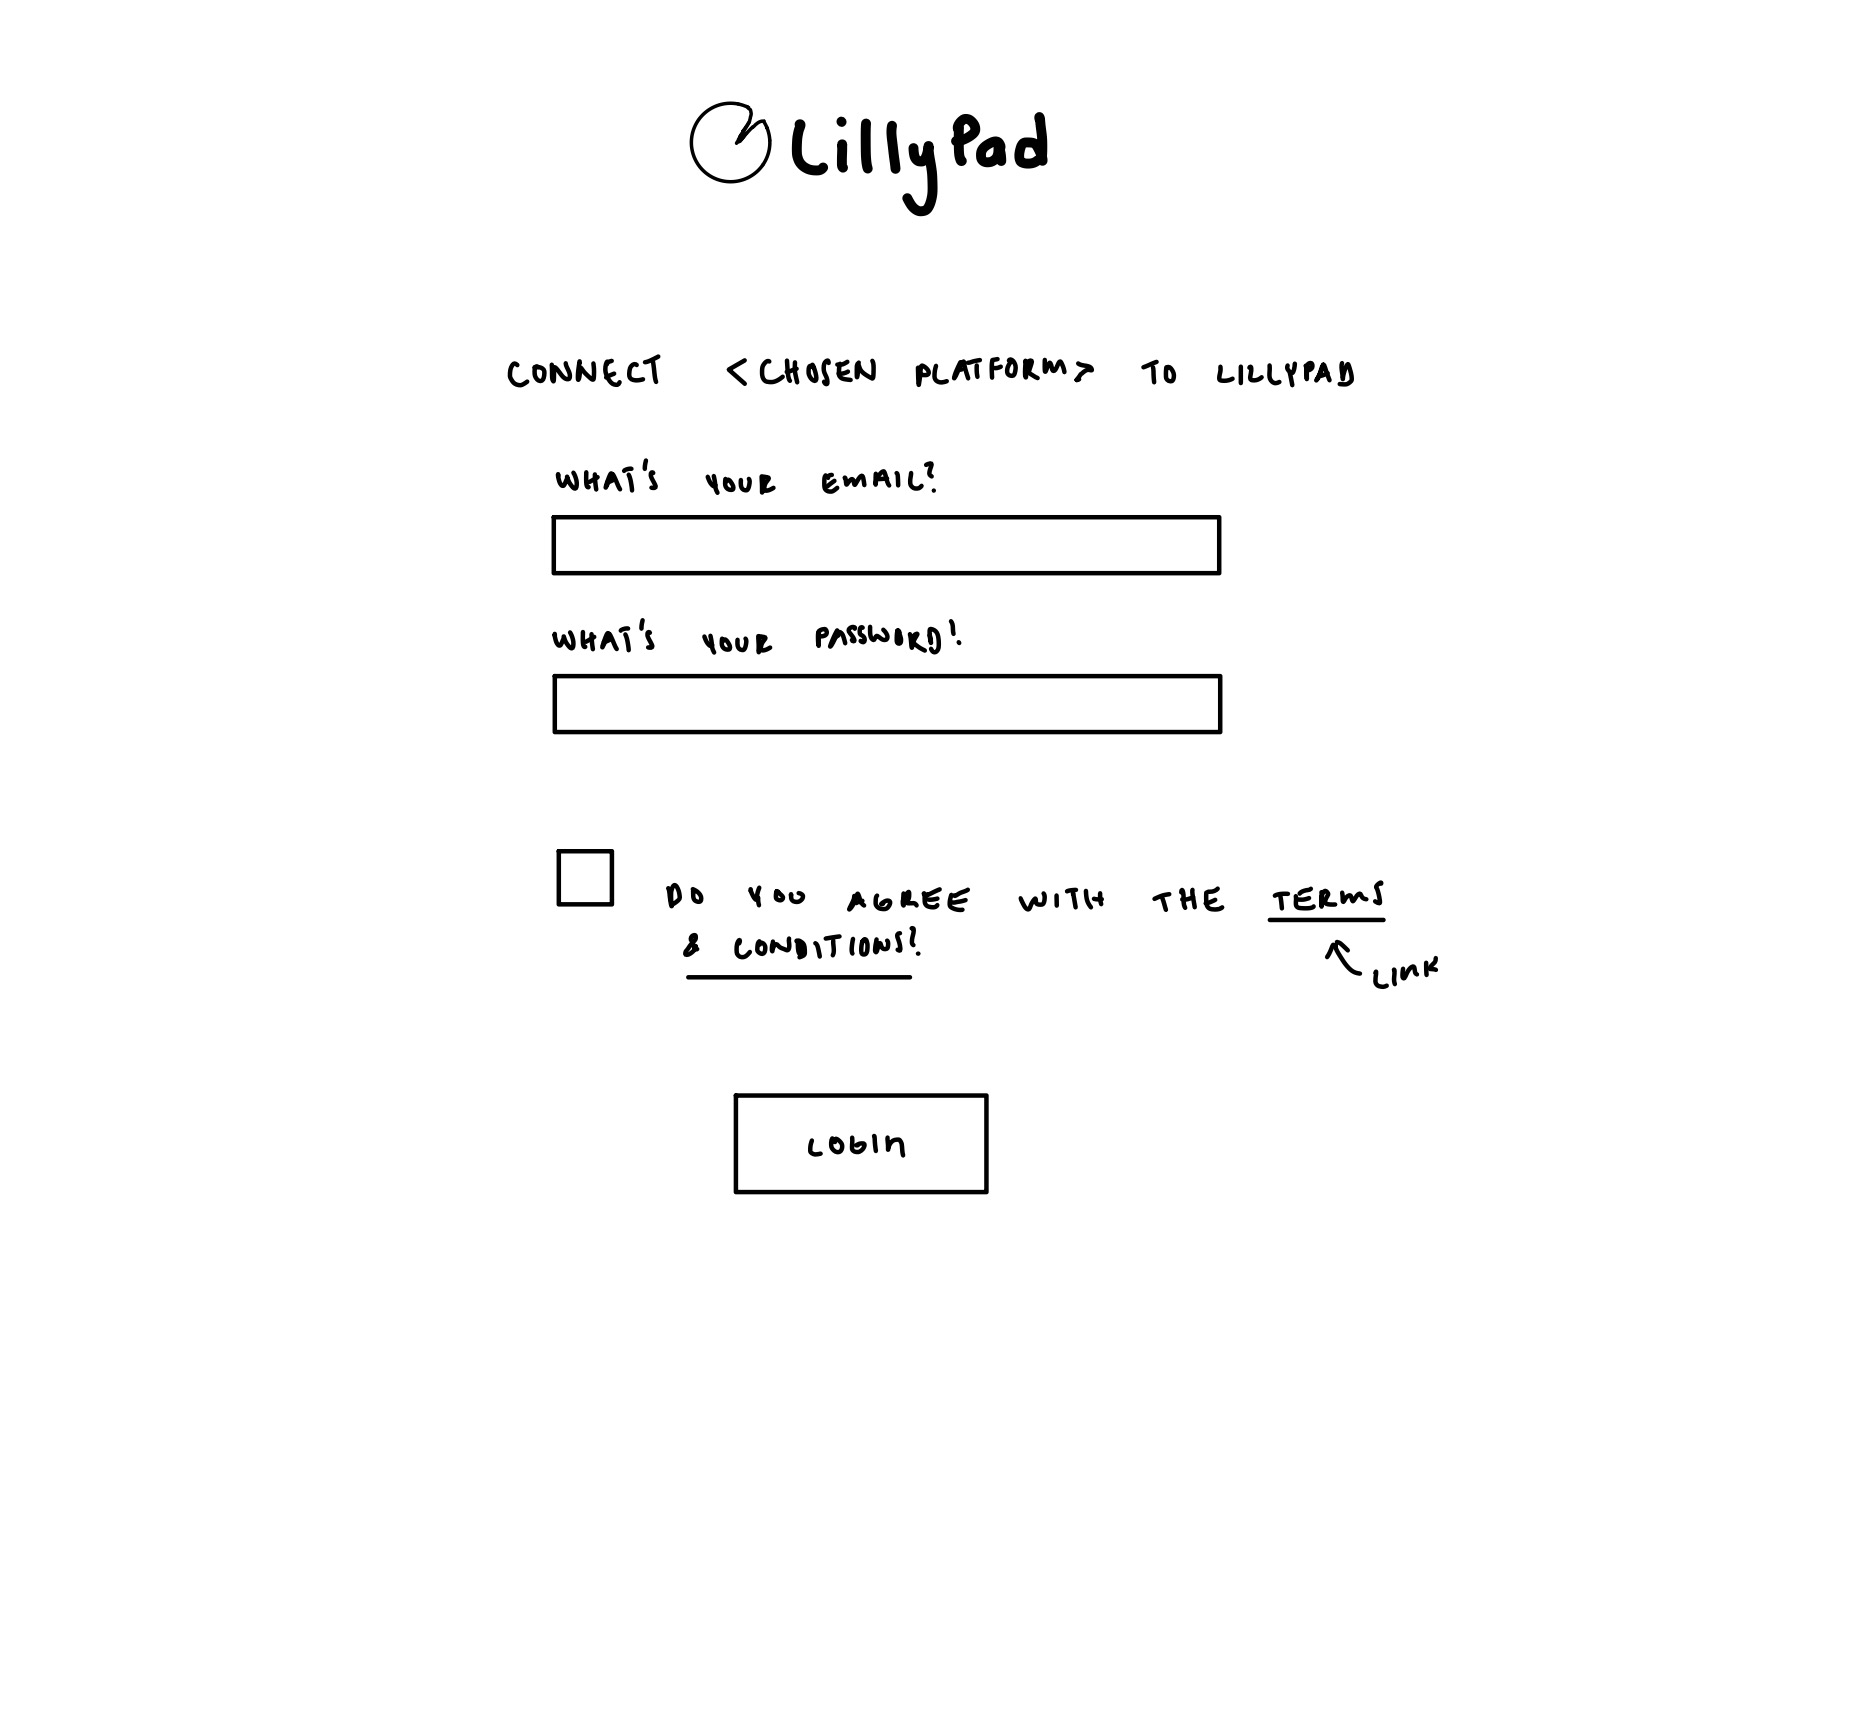 LillyPad
CONNECT <CHOSEN PLATFORM> TO LILLYPAD
WHAT'S YOUR EMAIL?
WHAT'S YOUR PASSWORD?
DO YOU AGREE WITH THE TERMS
& CONDITIONS?
LINK
LOGIN